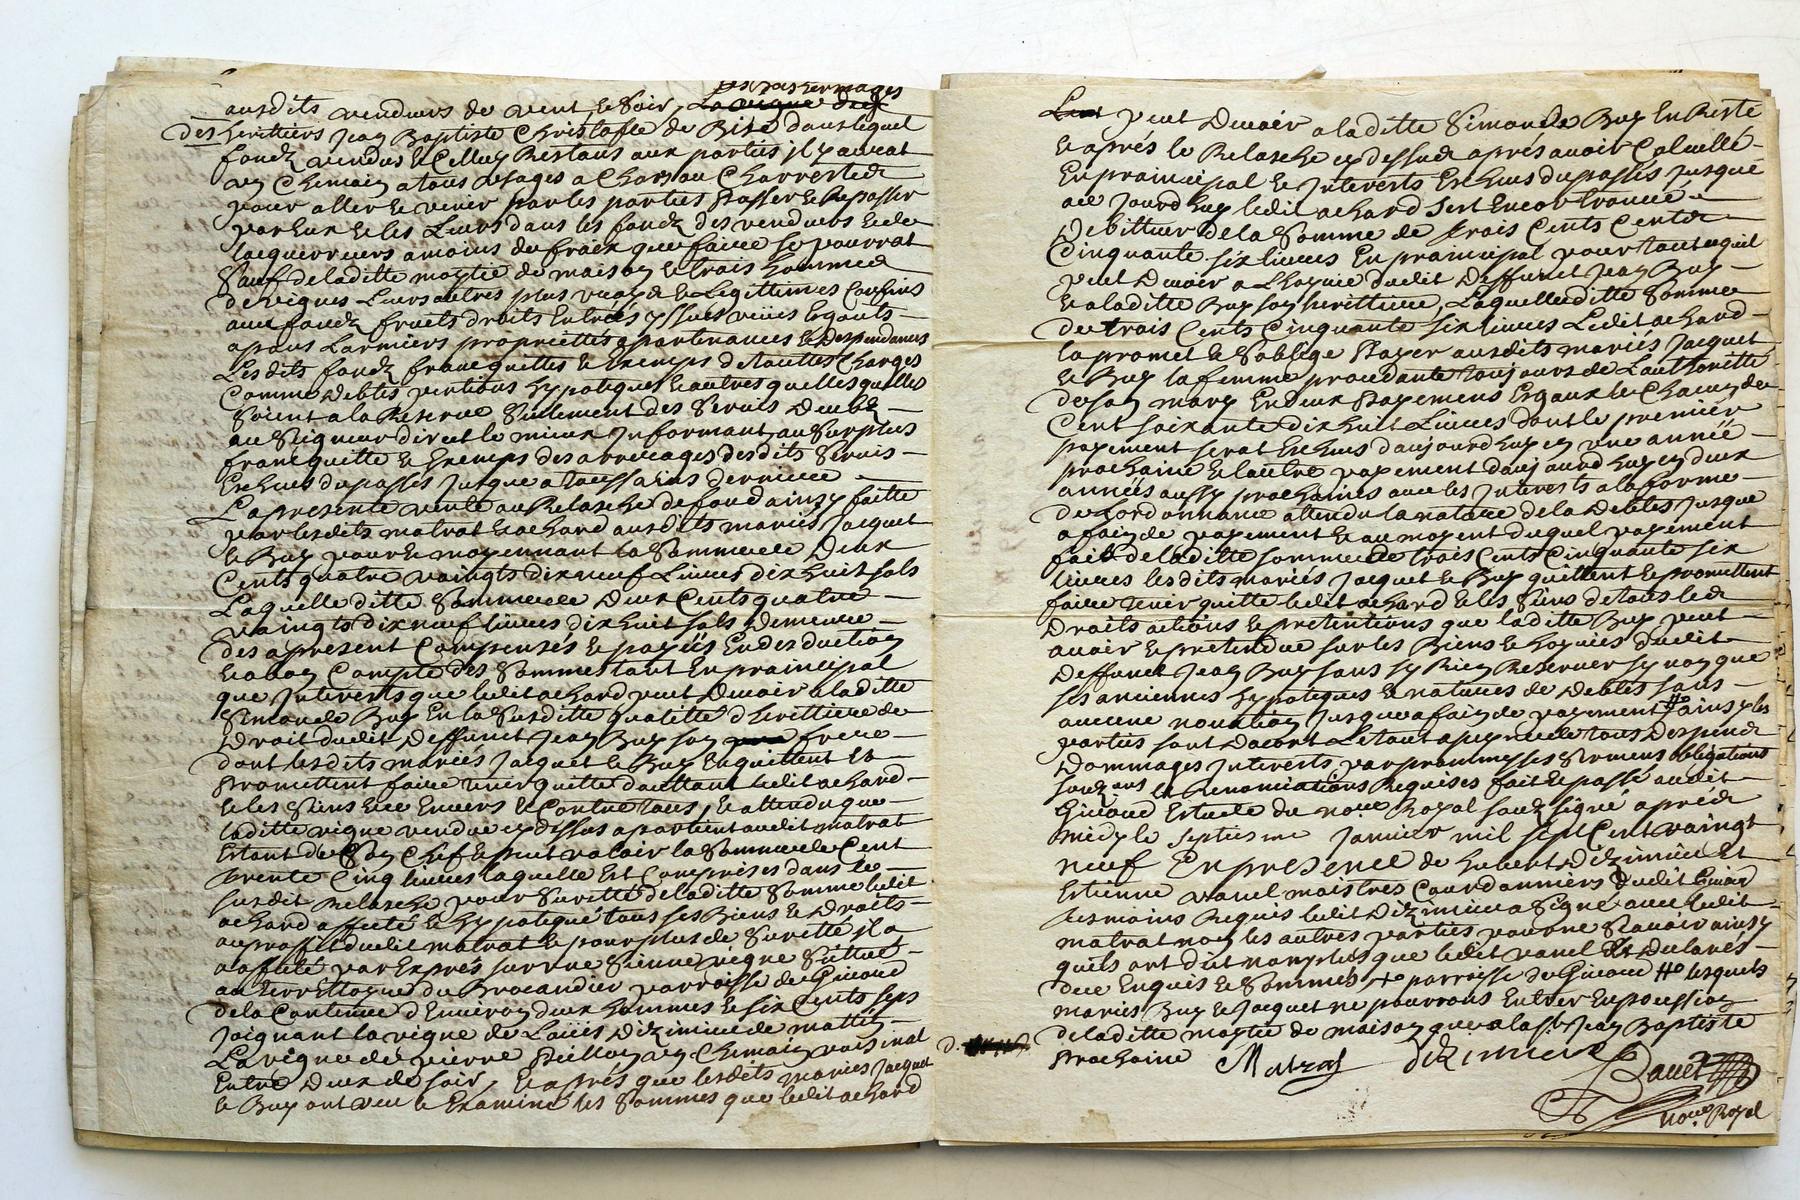 les pasturrages
ausdits vendeurs de vent le soir,
des herittiers Jean Baptiste Christofle de Bise dans lequel
fondz vendus & Celluy Restans aux parties il y aurat
un Chemain a tous usages a Chars ou Charrettes
pour aller & venir par les parties passer & Repasser
par Eux & les Leurs dans les fondz des vendeurs & de
lacquerreurs a moins de fraix que faire se pourrat
sauf de laditte moytie de maison & trois hommes
de vignes Leurs autres plus vrays & Legittimes Confins
aux fondz fruits droits Entrées yssues
propriettés apartenances & despendances
Lesdits fondz francquittes & Exemps de touttes Charges
Comme debtes pentions hypoteques & autres quelles quelles
soient a la Reserve seulement des servis deubz
au seigneur direct le mieux Informant, au surplus
francquitte & Exemps des arrerages desdits servis
Escheus du passés Jusque a toussains derniere
La presente vente ou Relasche de fond ainsy faitte
par lesdits matrat & achard ausdits mariés Jacquet
& Buy pour & moyennant la somme de deux
Cents quatre vaingts dix neuf Livres dix huit sols
Laquelle ditte somme de deux Cents quatre
vaingts dix neuf livres dix huit sols demeure
des apresent Compensés & payés En desduction
& a bon Compte des sommes tant En praincipal
que Interests que ledit achard peut devoir a laditte
Simonde Buy En la susditte qualitte dherittiere de
droit dudit deffunct Jean Buy son frere
dont lesdits mariés Jacquet & Buy En quittent &
promettent faire tenir quitte dautant ledit achard
& les siens Envers & Contre tous, & attendu que
laditte vigne vendue cy dessus apartient audit matrat
Estant de son Chef & peut valoir la somme de Cent
trente Cinq livres laquelle Est Comprises dans le
susdit Relasche pour suretté de laditte somme ledit
achard affecté & hypotequé tous ses Biens & droits
au proffit dudit matrat & pour plus de suretté il a
affecté par Exprés sur une sienne vigne sittué
au terrettoyre du Brocandier parroisse de Givord
de la Contenue dEnviron deux hommes & six Cents seps
Joignant la vigne de Loüis Dizimieu de mattin
La vigne de pierre un Chemain voisinal
Entre deux de soir, & aprés que lesdits mariés Jacquet
& Buy ont veu & Examiné les sommes que ledit achard
peut devoir a laditte Simonde Buy En Reste
& aprés le Relasche cy dessus apres avoir Calcullé
En praincipal & Interests Escheus du passés Jusque
au Jourdhuy ledit achard sest Encor trouvé
debitteur de la somme de trois Cents Cents
Cinquante six livres En praincipal pour tout cequil
peut devoir a Lhoyrie dudit deffunct Jean Buy
& a laditte Buy son herittiere, Laquelle ditte somme
de trois Cents Cinquante six livres Ledit achard
la promet & soblige payer ausdits mariés Jacquet
& Buy la femme procedante toujours de Lauthoritté
de son mary En deux payemens Esgaux & Chacun de
Cent soixante dix huit Livres dont le premier
payement serat Escheus daujourdhuy en une année
prochaine & lautre payement daujourdhuy en deux
années aussy prochaines avec les Interests a la forme
de Lordonnance attendu la nature de la debtes Jusque
a fain de payement & au moyent duquel payement
fait de laditte somme de trois Cents Cinquante six
livres lesdits mariés Jacquet & Buy quittent & promettent
faire tenir quitte ledit achard & les siens de tous les
droits actions & pretentions que laditte Buy peut
avoir & pretendre sur les Biens & hoyries dudit
deffunct Jean Buy sans sy Rien Reserver sy non que
ses anciennes hypoteques & natures de debtes sans
aucune novation Jusque a fain de payement ainsy les
parties sont dacort Letout a peyne de tous despens
dommages Interests par promesses sermens obligations
Renonciations Requises fait & passé audit
Givord Estude du nore Royal souz signé aprés
midy le septieme Janvier mil sept Cent vaingt
neuf En presence de hubert Dizimieu Et
Estienne vanel maistres Cordonniers dudit Givord
tesmoins Requis ledit Dizimieu a signé avec ledit
matrat non les autres parties pour ne scavoir ainsy
quils ont dit non plus que ledit vanel de ce
Enquis & sommés parroisse de Givord lesquels
mariés Buy & Jacquet ne pourrons Entrer En possession
de laditte moytie de maison que a la St Jean Baptiste
prochaine Matrat Dizimieu
nore Royal